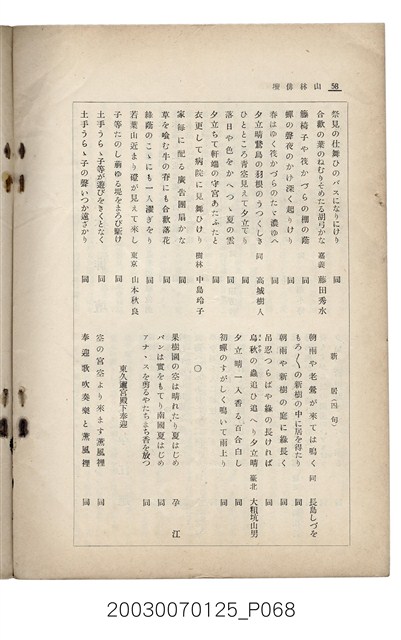 山林俳壇 58
祭見の仕舞ひのバスになりにけり 同
合歓の葉のねむりそめたる胡弓かな 嘉義 藤田秀水
籐椅子や夜かづらの棚の蔭 同
蟬の聲夜のかけ深く起りけり 同
春はゆく夜かづらのたゝ濃ゆへ 同
夕立晴鷲鳥の羽根のうつくしき 同 高城樹人
ひとところ青空見えて夕立てり 同
落日や色をかへつゝ夏の雲 同
夕立ちて軒端の守宮あたふたと 同
衣更して病院に見舞ひけり 樹林 中島玲子
家毎に配る廣告團扇かな 同
草を喰む牛の脊にも合歓落花 同
綠蔭のこゝにも一人濯ぎをり 同
若葉山近まり礎が見えて來し 東京 山本秋良
子等たのし萠ゆる堤をまろび駈け 同
土手うらゝ子等が遊びをきくとなく 同
土手うらゝ子の聲いつか遠ざかり 同
新居(四句)
朝雨や老鶯が來ては鳴く 同 長島しづを
もろ〳〵の新樹の中に居を得たり 同
朝雨や新樹の庭に綠長く 同
吊忍つらばや綠の長ければ 同
烏秋の蟲追ひ追へり夕立晴 臺北 大粗坑山男
夕立晴一人香る百合白し 同
初蟬のすがしく鳴いて雨上り 同
○
果樹園の空は晴れたり夏はじめ 孕江
パンは實をもて南國夏はじめ 同
アナヽスを剪るやたちまち香を放つ 同
東久邇宮殿下奉迎
空の宮空より來ます薰風裡 同
奉迎歌吹奏樂と薰風裡 同
20030070125_P068